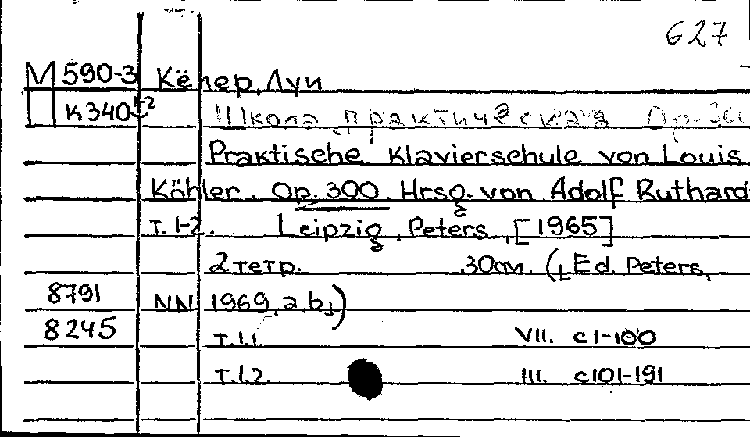 627
М 590-3 Кёлер, Луи
К340 Школа практическая Op. 300
Praktische Klavierschule von Louis
Köhler. Op. 300 Hrsg. von Adolf Ruthard
Т. 1-2. Leipzig, Peters, [1965]
2 тетр. 30см. (Ed. Peters,
8791 NN 1969, a, b,)
8245 Т.1.1. VII. с 1-100
Т.1.2. III. с101-191